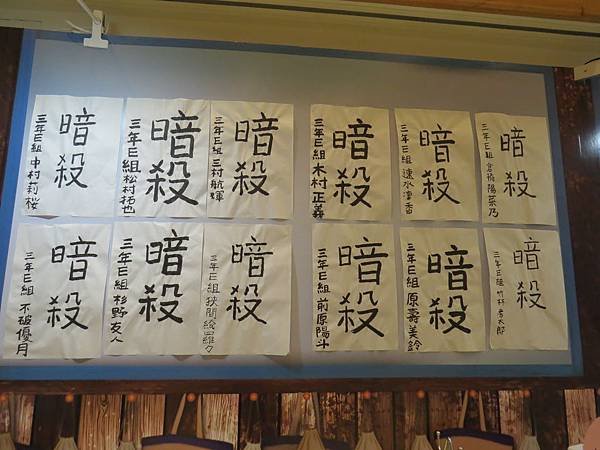 暗殺
三年E組 中村莉桜
暗殺
三年E組 松村拓也
暗殺
三年E組 三村航輝
暗殺
三年E組 木村正義
暗殺
三年E組 速水凛香
暗殺
三年E組 倉橋陽菜乃
暗殺
三年E組 不破優月
暗殺
三年E組 杉野友人
暗殺
三年E組 狭間綺羅々
暗殺
三年E組 前原陽斗
暗殺
三年E組 原壽美鈴
暗殺
三年E組 竹林孝太郎